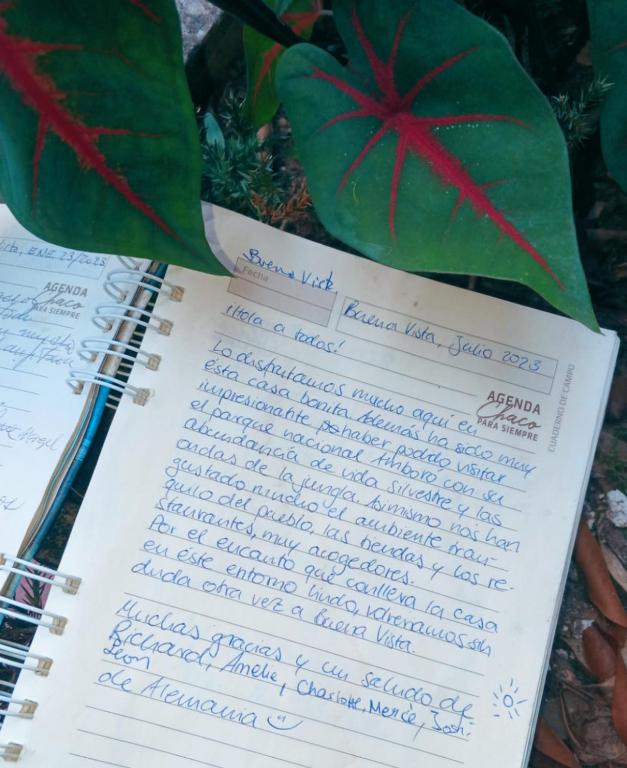 ENE 23/2023
AGENDA
Chaco
PARA SIEMPRE
Buena Vista
Fecha
Buena Vista, Julio 2023
AGENDA
Chaco
PARA SIEMPRE
CUADERNO DE CAMPO
¡Hola a todos!
Lo disfrutamos mucho aquí en
ésta casa bonita. Además ha sido muy
impresionante de haber podido visitar
el parque nacional Amboró con su
abundancia de vida silvestre y las
ondas de la jungla. Asimismo nos han
gustado mucho el ambiente tran-
quilo del pueblo, las tiendas y los re-
staurantes, muy acogedores.
Por el encanto que conlleva la casa
en éste entorno lindo, volveremos sin
duda otra vez a Buena Vista.
Muchas gracias y un saludo de
Richard, Amelie, Charlotte, Merce, Josh,
Leon
de Alemania